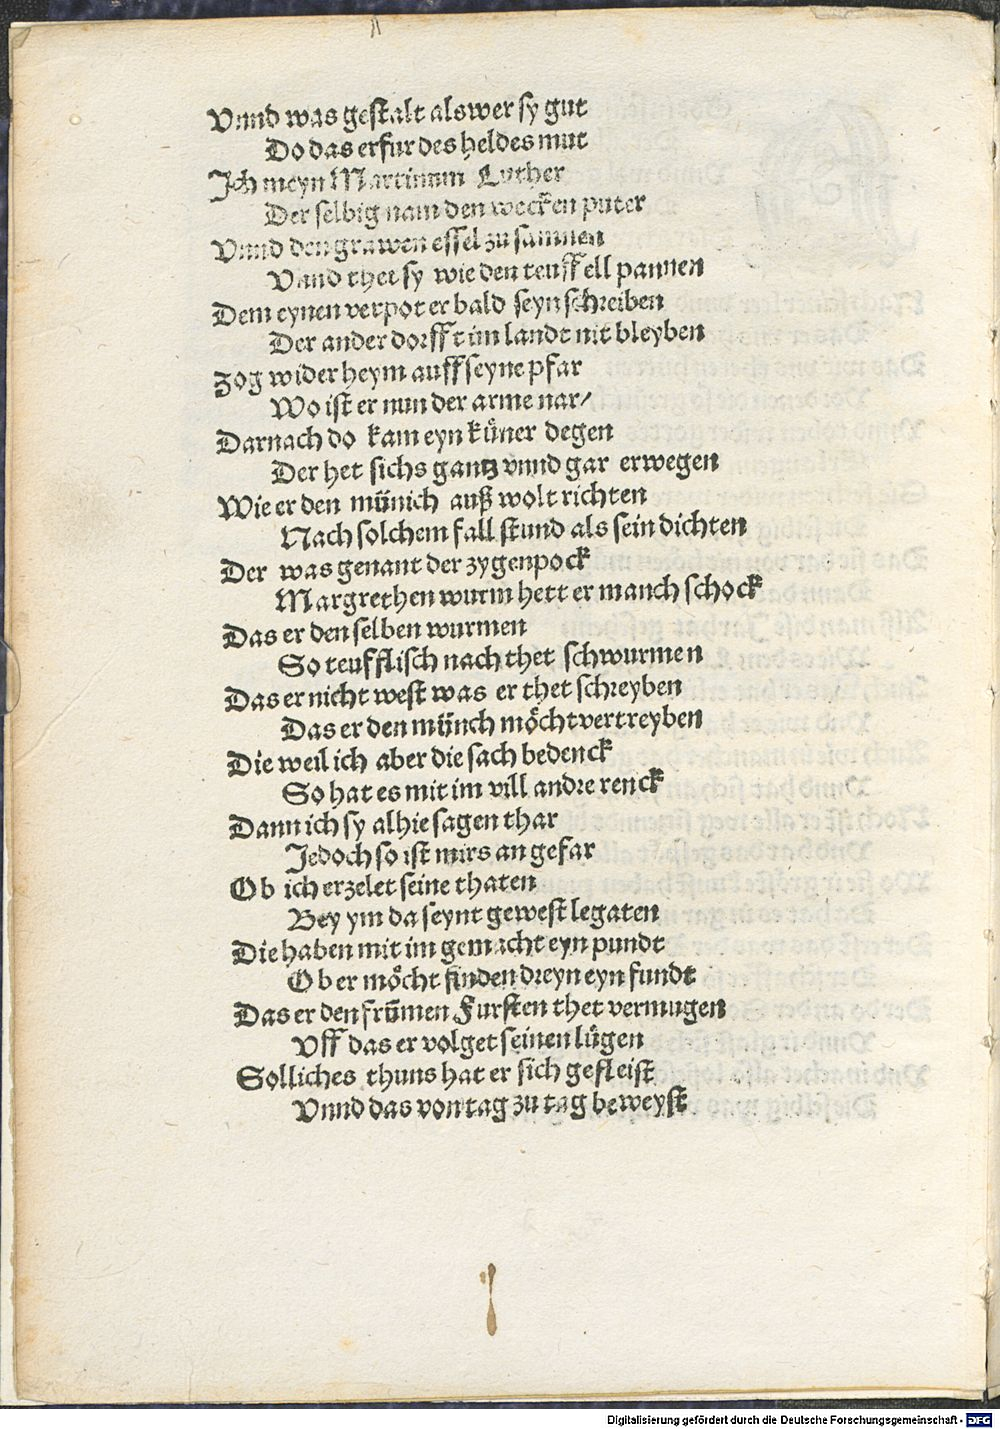 Vnnd was gestalt als wer sy gut
Do das erfur des heldes mut
Ich meyn Martinum Luther
Der selbig nam den wecken puter
Vnnd den grawen essel zu samnen
Vnnd thet sy wie den teuffell pannen
Dem eynen verpot er bald seyn schreiben
Der ander dorfft im landt nit bleyben
Zog wider heym auff seyne pfar
Wo ist er nun der arme nar/
Darnach do kam eyn küner degen
Der het sichs gantz vnnd gar erwegen
Wie er den münich auß wolt richten
Nach solchem fall stund als sein dichten
Der was genant der zygenpock
Margrethen wurm hett er manch schock
Das er den selben wurmen
So teufflisch nach thet schwurmen
Das er nicht west was er thet schreyben
Das er den münch möcht vertreyben
Die weil ich aber die sach bedenck
So hat es mit im vill andre renck
Dann ich sy alhie sagen thar
Jedoch so ist mirs an gefar
Ob ich erzelet seine thaten
Bey ym da seynt gewest legaten
Die haben mit im gemacht eyn pundt
Ob er möcht finden dreyn eyn fundt
Das er den frūmen Fursten thet vermugen
Vff das er volget seinen lügen
Solliches thuns hat er sich gefleist
Vnnd das von tag zu tag beweyst
Digitalisierung gefördert durch die Deutsche Forschungsgemeinschaft - DFG